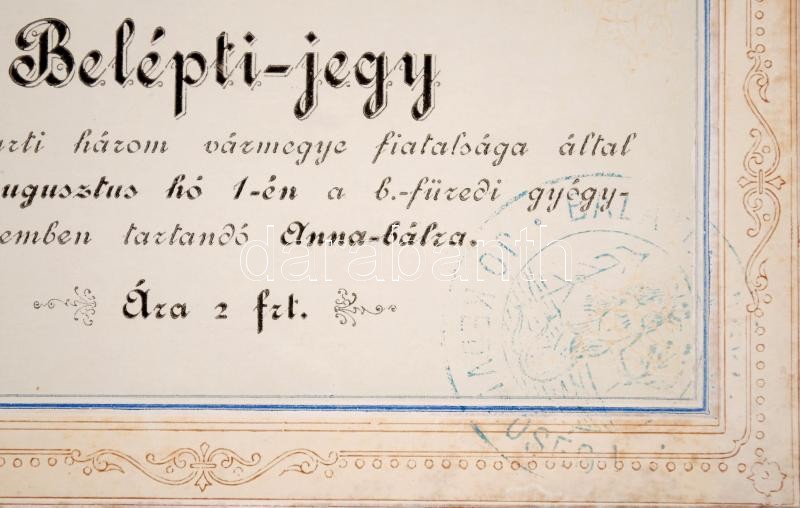 Belépti-jegy
arti három vármegye fiatalsága által
ugusztus hó 1-én a b.-füredi gyógy-
emben tartandó Anna-bálra.
darabanth
Ára 2 frt.